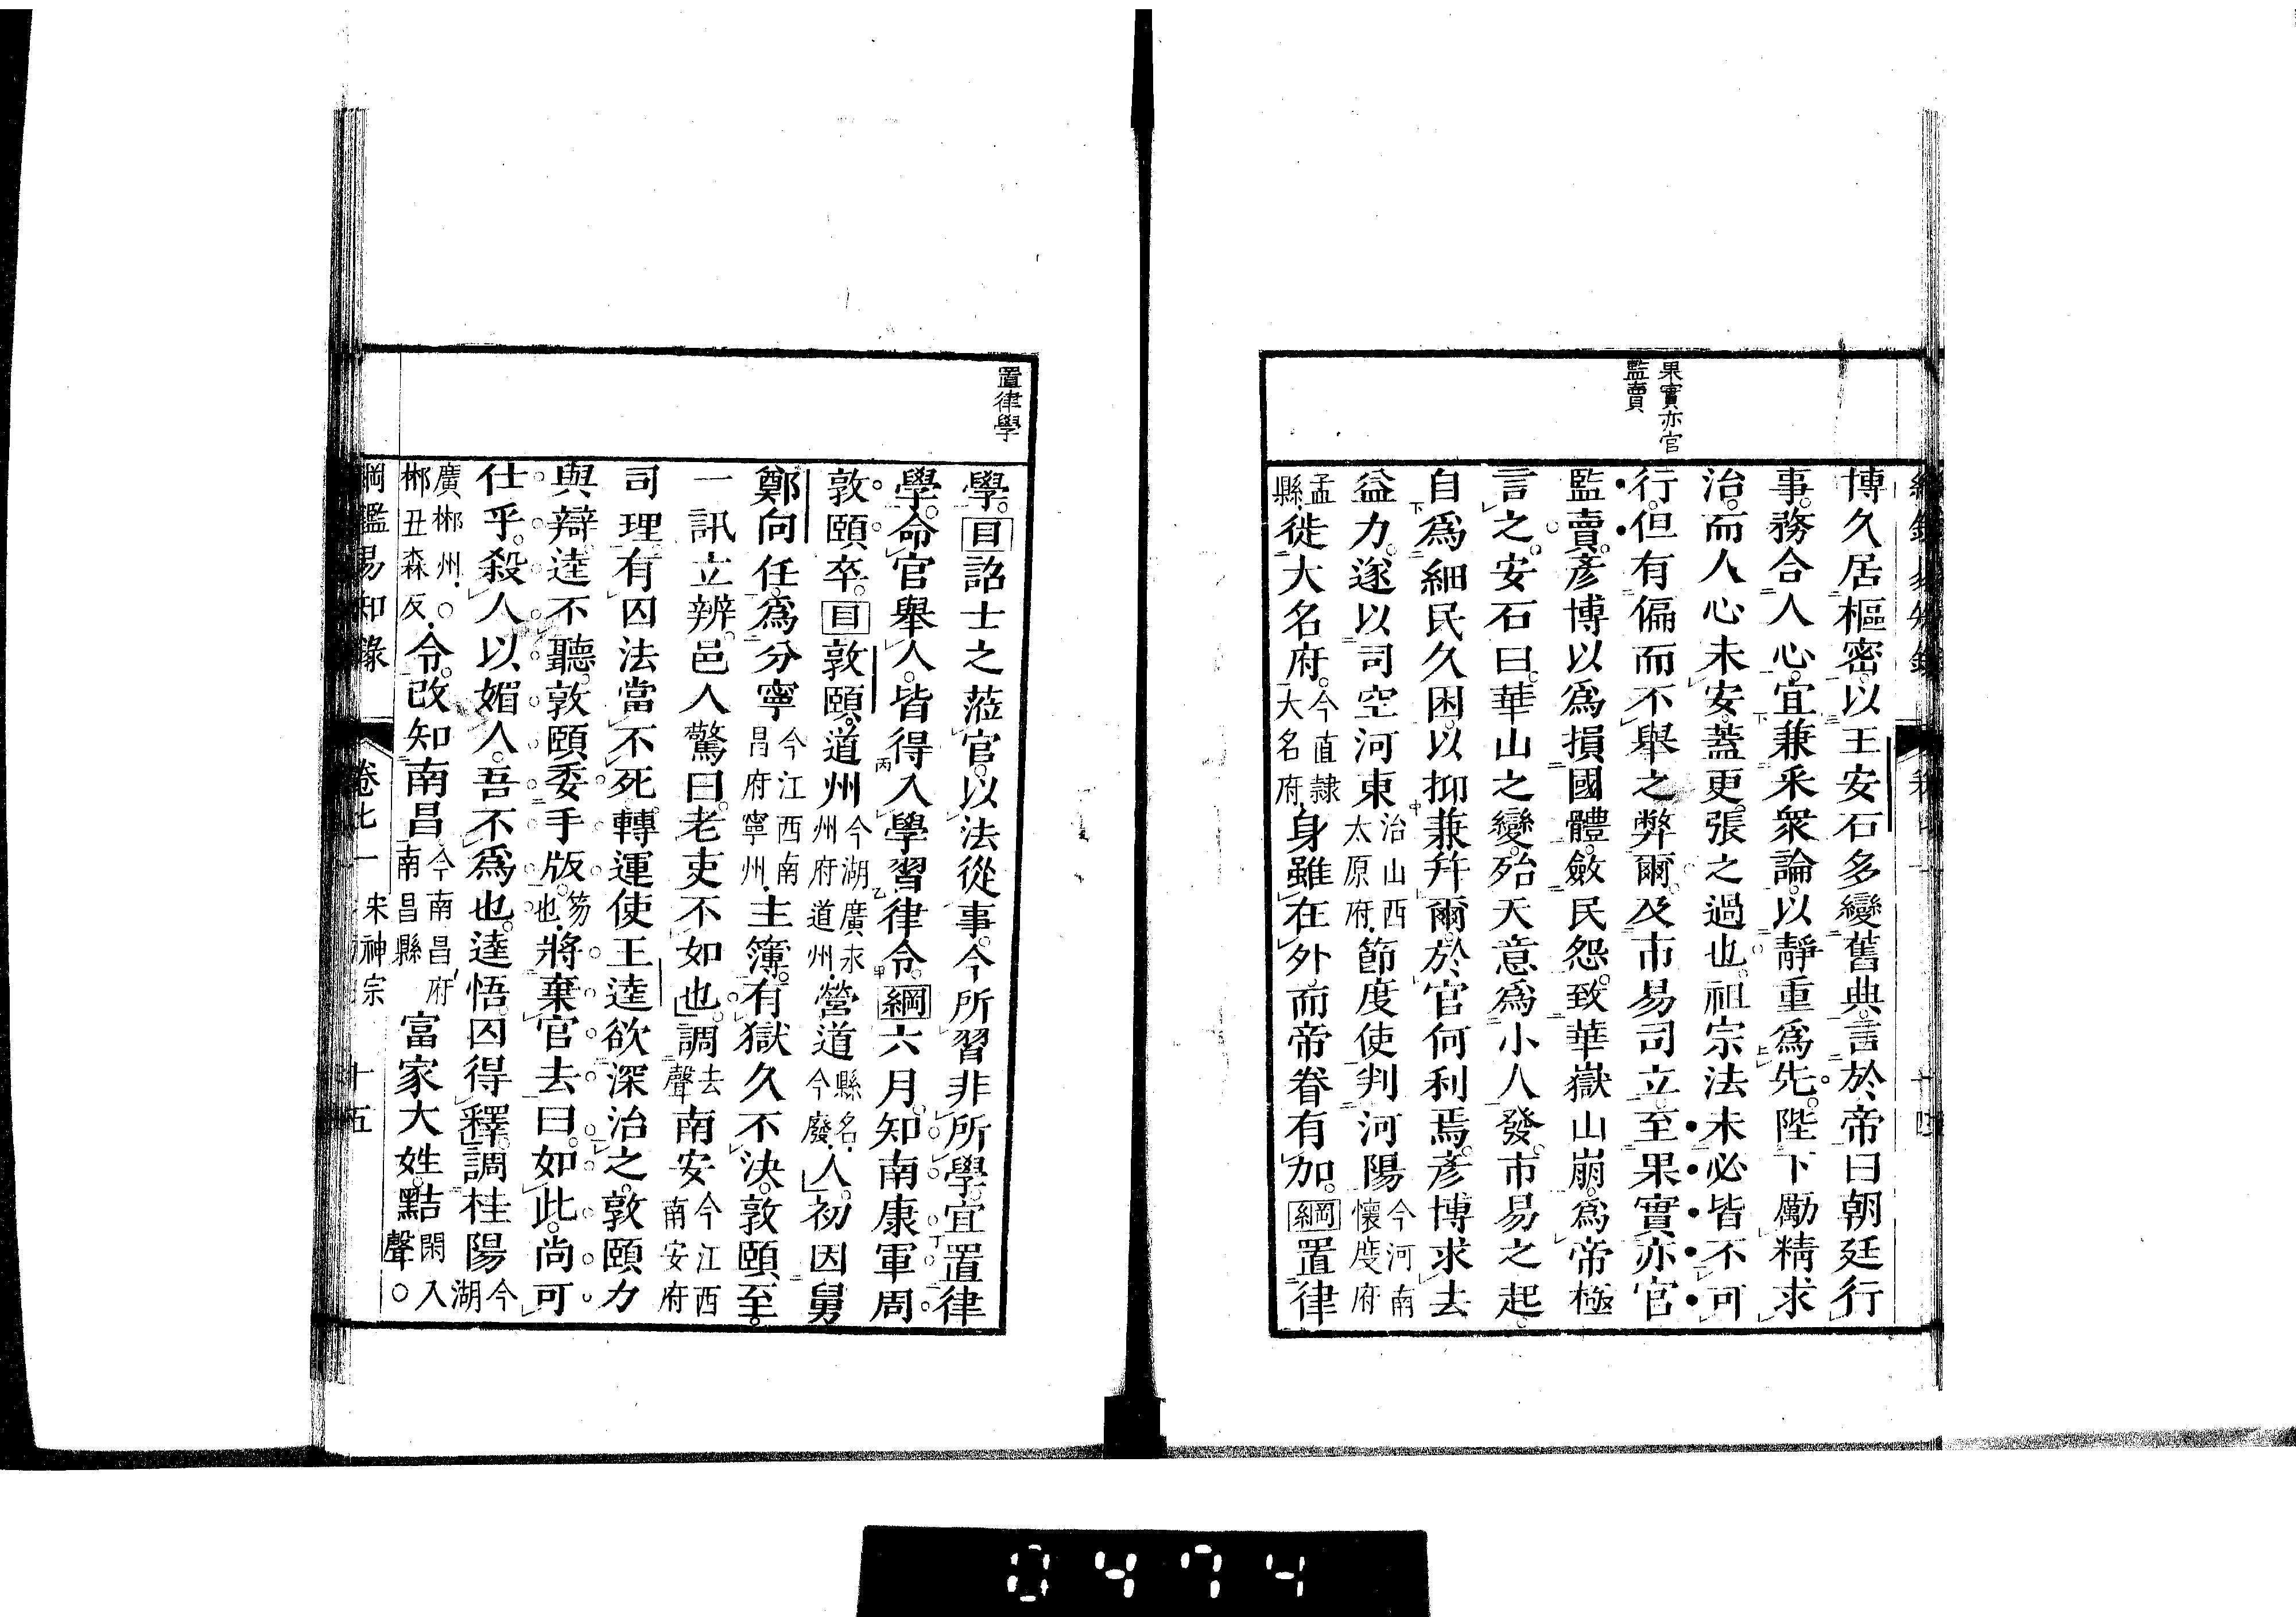 果實亦官
監賣
博久居樞密以王安石多變舊典言於帝曰朝廷行
事務合人心宜兼釆衆論以靜重爲先陛下勵精求
治而人心未安蓋更張之過也祖宗法未必皆不可
行但有偏而不舉之弊爾及市易司立至果實亦官
監賣彥博以爲損國體斂民怨致華嶽山崩爲帝極
言之安石曰華山之變殆天意爲小人發市易之起
自爲細民久困以抑兼幷爾於官何利焉彥博求去
益力遂以司空河東治山西太原府節度使判河陽今河南懷慶府
孟縣徙大名府今直隸大名府身雖在外而帝眷有加綱置律
置律學
學目詔士之蒞官以法從事今所習非所學宜置律
學命官舉人皆得入學習律令綱六月知南康軍周
敦頤卒目敦頤道州今湖廣永州府道州營道縣名今廢人初因舅
鄭向任爲分寧今江西南昌府寧州主簿有獄久不決敦頤至
一訊立辨邑人驚曰老吏不如也調去聲南安今江西南安府
司理有囚法當不死轉運使王逵欲深治之敦頤力
與辯逵不聽敦頤委手版笏也將棄官去曰如此尚可
仕乎殺人以媚人吾不爲也逵悟囚得釋調桂陽今湖
廣郴州○郴丑森反令改知南昌今南昌府南昌縣富家大姓黠閑入聲○
綱鑑易知錄 卷七一 宋神宗 十五
0474